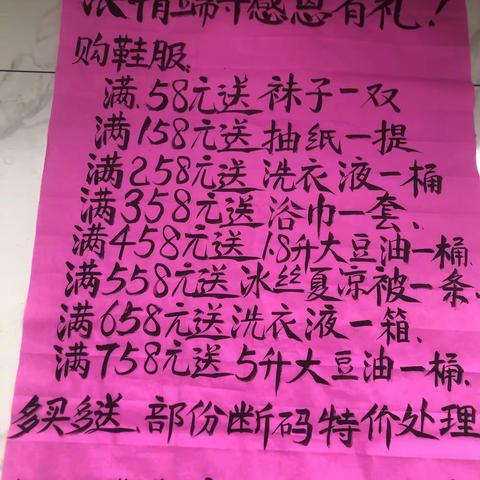 浓情端午感恩有礼！
购鞋服、
满58元送袜子一双
满158元送抽纸一提
满258元送洗衣液一桶
满358元送浴巾一套、
满458元送1.8升大豆油一桶、
满558元送冰丝夏凉被一条、
满658元送洗衣液一箱、
满758元送5升大豆油一桶、
多买多送、部份断码特价处理